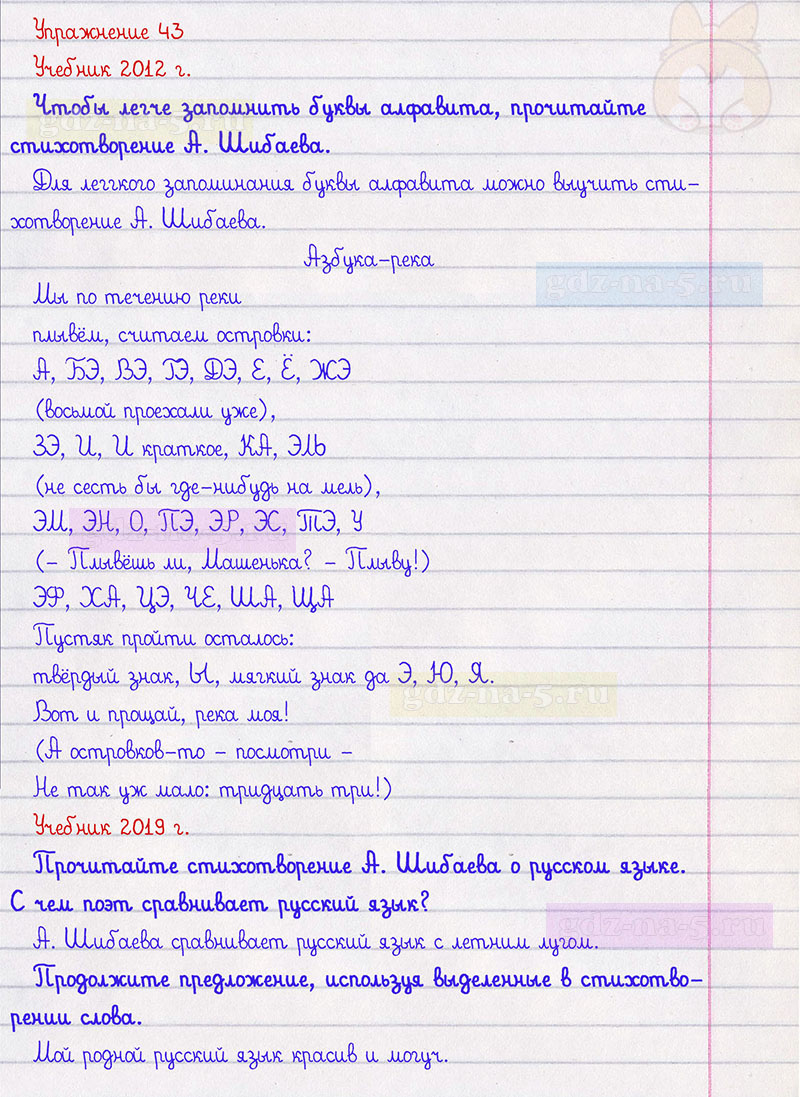 Упражнение 43
Учебник 2012 г.
Чтобы легче запомнить буквы алфавита, прочитайте
стихотворение А. Шибаева.
Для леггкого запоминания буквы алфавита можно выучить сти-
хотворение А. Шибаева.
Азбука-река
Мы по течению реки
плывём, считаем островки:
А, БЭ, ВЭ, ГЭ, ДЭ, Е, Ё, ЖЭ
(восьмой проехали уже),
ЗЭ, И, И краткое, КА, ЭЛЬ
(не сесть бы где-нибудь на мель),
ЭМ, ЭН, О, ПЭ, ЭР, ЭС, ТЭ, У
(- Плывёшь ли, Машенька? - Плыву!)
ЭФ, ХА, ЦЭ, ЧЕ, ША, ЩА
Пустяк пройти осталось:
твёрдый знак, Ы, мягкий знак да Э, Ю, Я.
Вот и прощай, река моя!
(А островков-то - посмотри -
Не так уж мало: тридцать три!)
Учебник 2019 г.
Прочитайте стихотворение А. Шибаева о русском языке.
С чем поэт сравнивает русский язык?
А. Шибаева сравнивает русский язык с летним лугом.
Продолжите предложение, используя выделенные в стихотво-
рении слова.
Мой родной русский язык красив и могуч.
gdz-na-5.ru
gdz-na-5.ru
gdz-na-5.ru
gdz-na-5.ru
gdz-na-5.ru